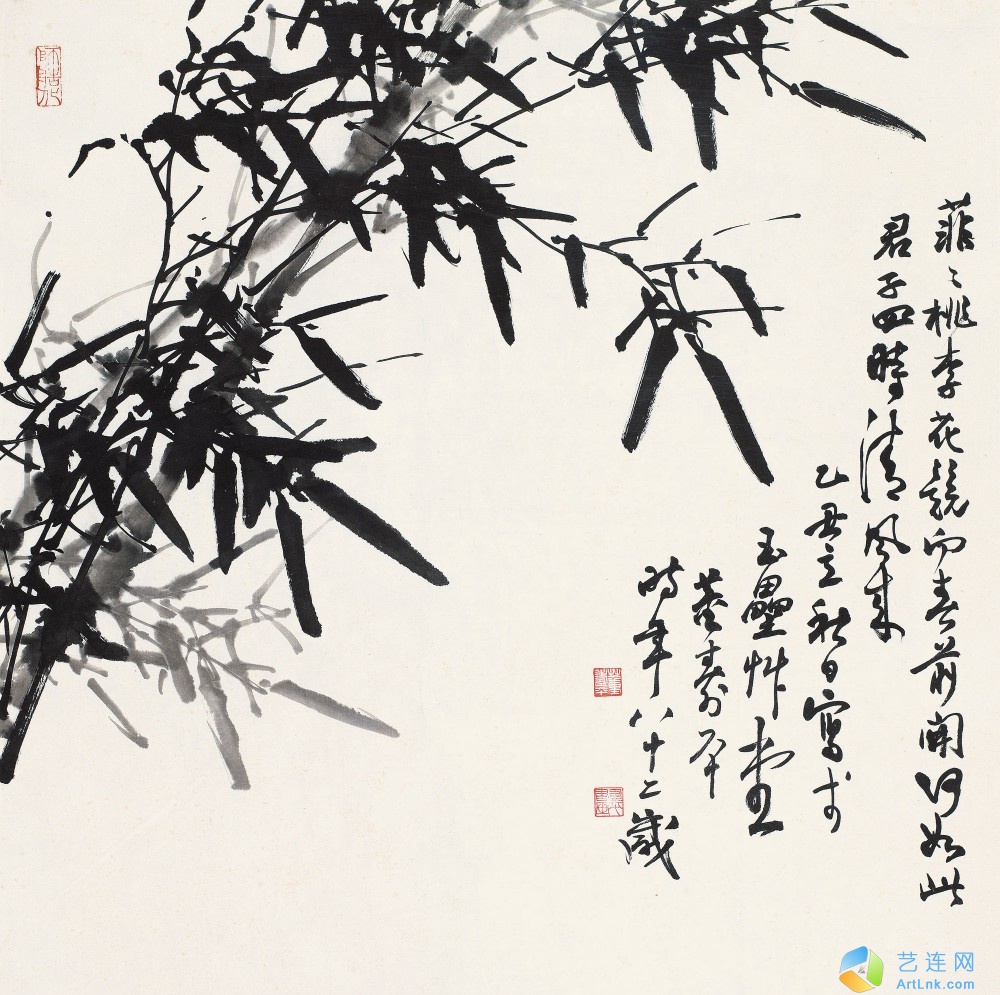 菲〻桃李花競向春前開何如此
君子四時清風來
乙丑立秋日寫于
玉壘艸堂
董壽平
時年八十二歲
師造化
艺连网
ArtLnk.com